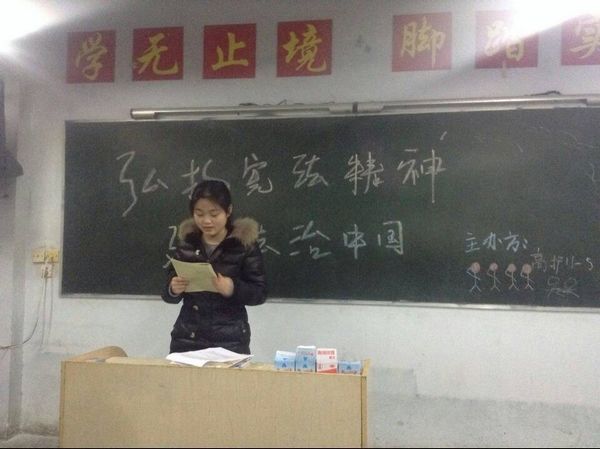 学无止境 脚踏实
弘扬宪法精神
法治中国
主办方:
高护11-5